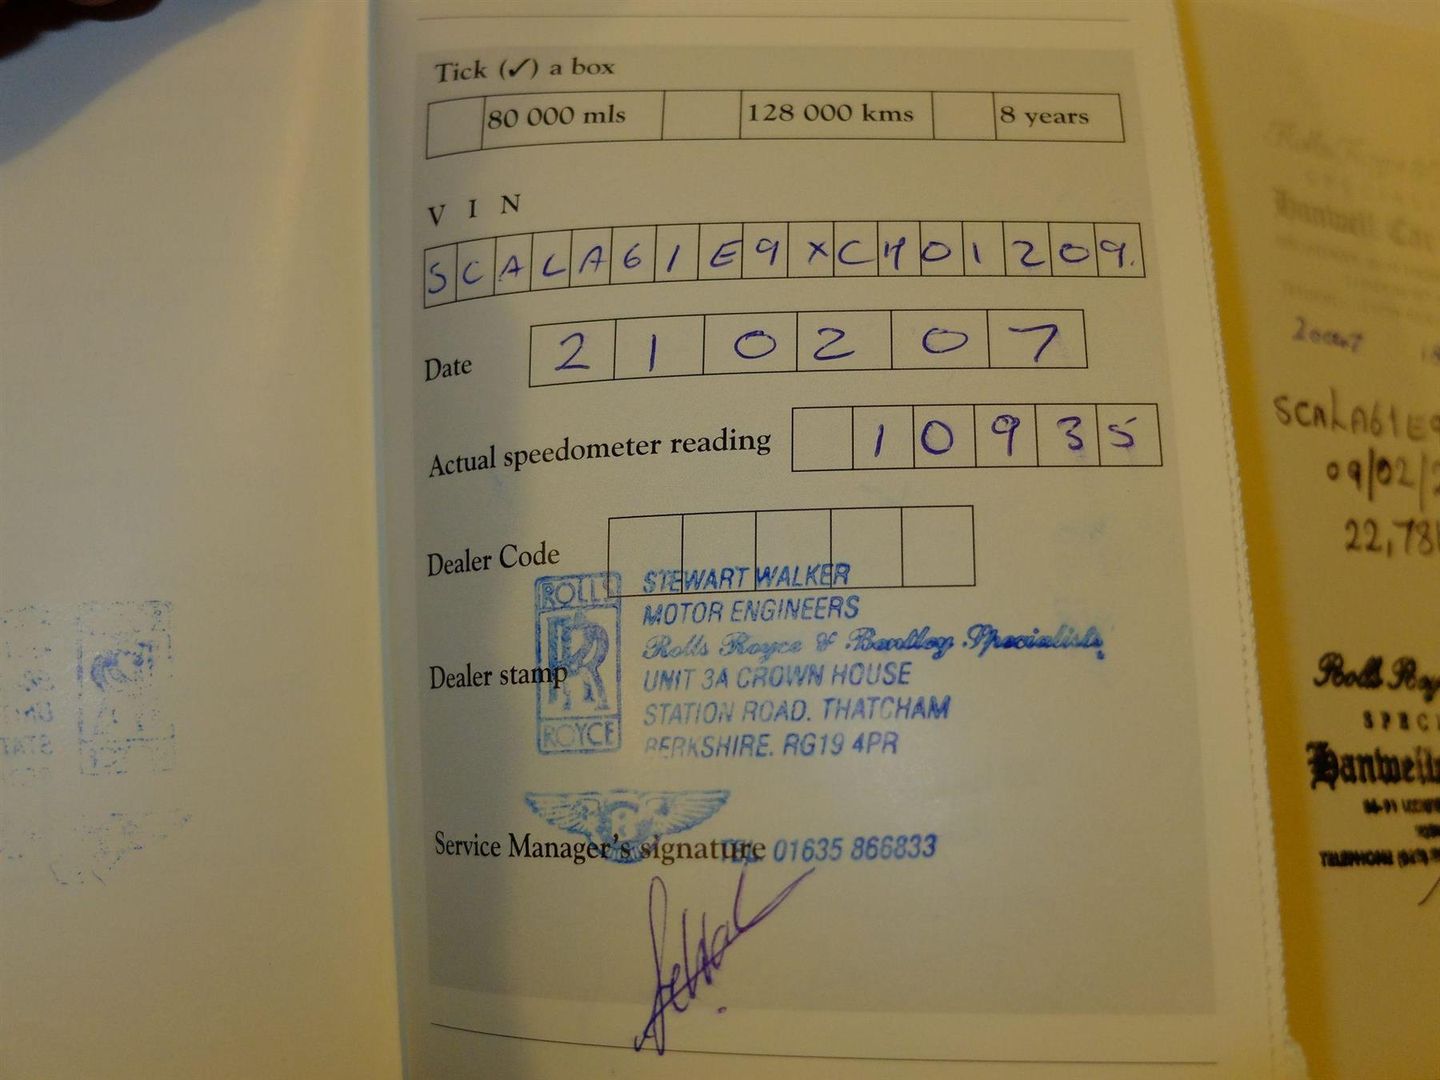 Tick (✓) a box
80 000 mls 128 000 kms 8 years
V I N
SCALA61E9XCH01209.
Date 210207
Actual speedometer reading 10935
Dealer Code
ROLLS
RR
ROYCE
STEWART WALKER
MOTOR ENGINEERS
Rolls Royce & Bentley Specialists
Dealer stamp
UNIT 3A CROWN HOUSE
STATION ROAD. THATCHAM
BERKSHIRE. RG19 4PR
B
Service Manager's signature
TEL 01635 866833
Hanwell Car
SCALA61E9
09/02/2
22,78
Rolls Roy
SPECI
Hanwells
TELEPHONE